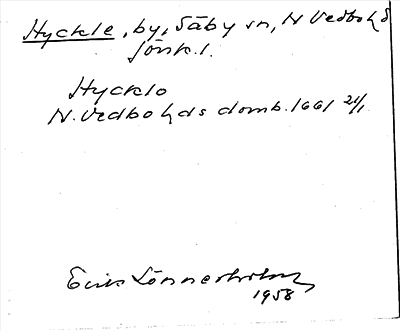 Hyckle, by, Säby sn, N Vedbo hd
Jönk. l.
Hycklo
N. Vedbo hds domb. 1661 21/1
Erik Lönnerholm
1958